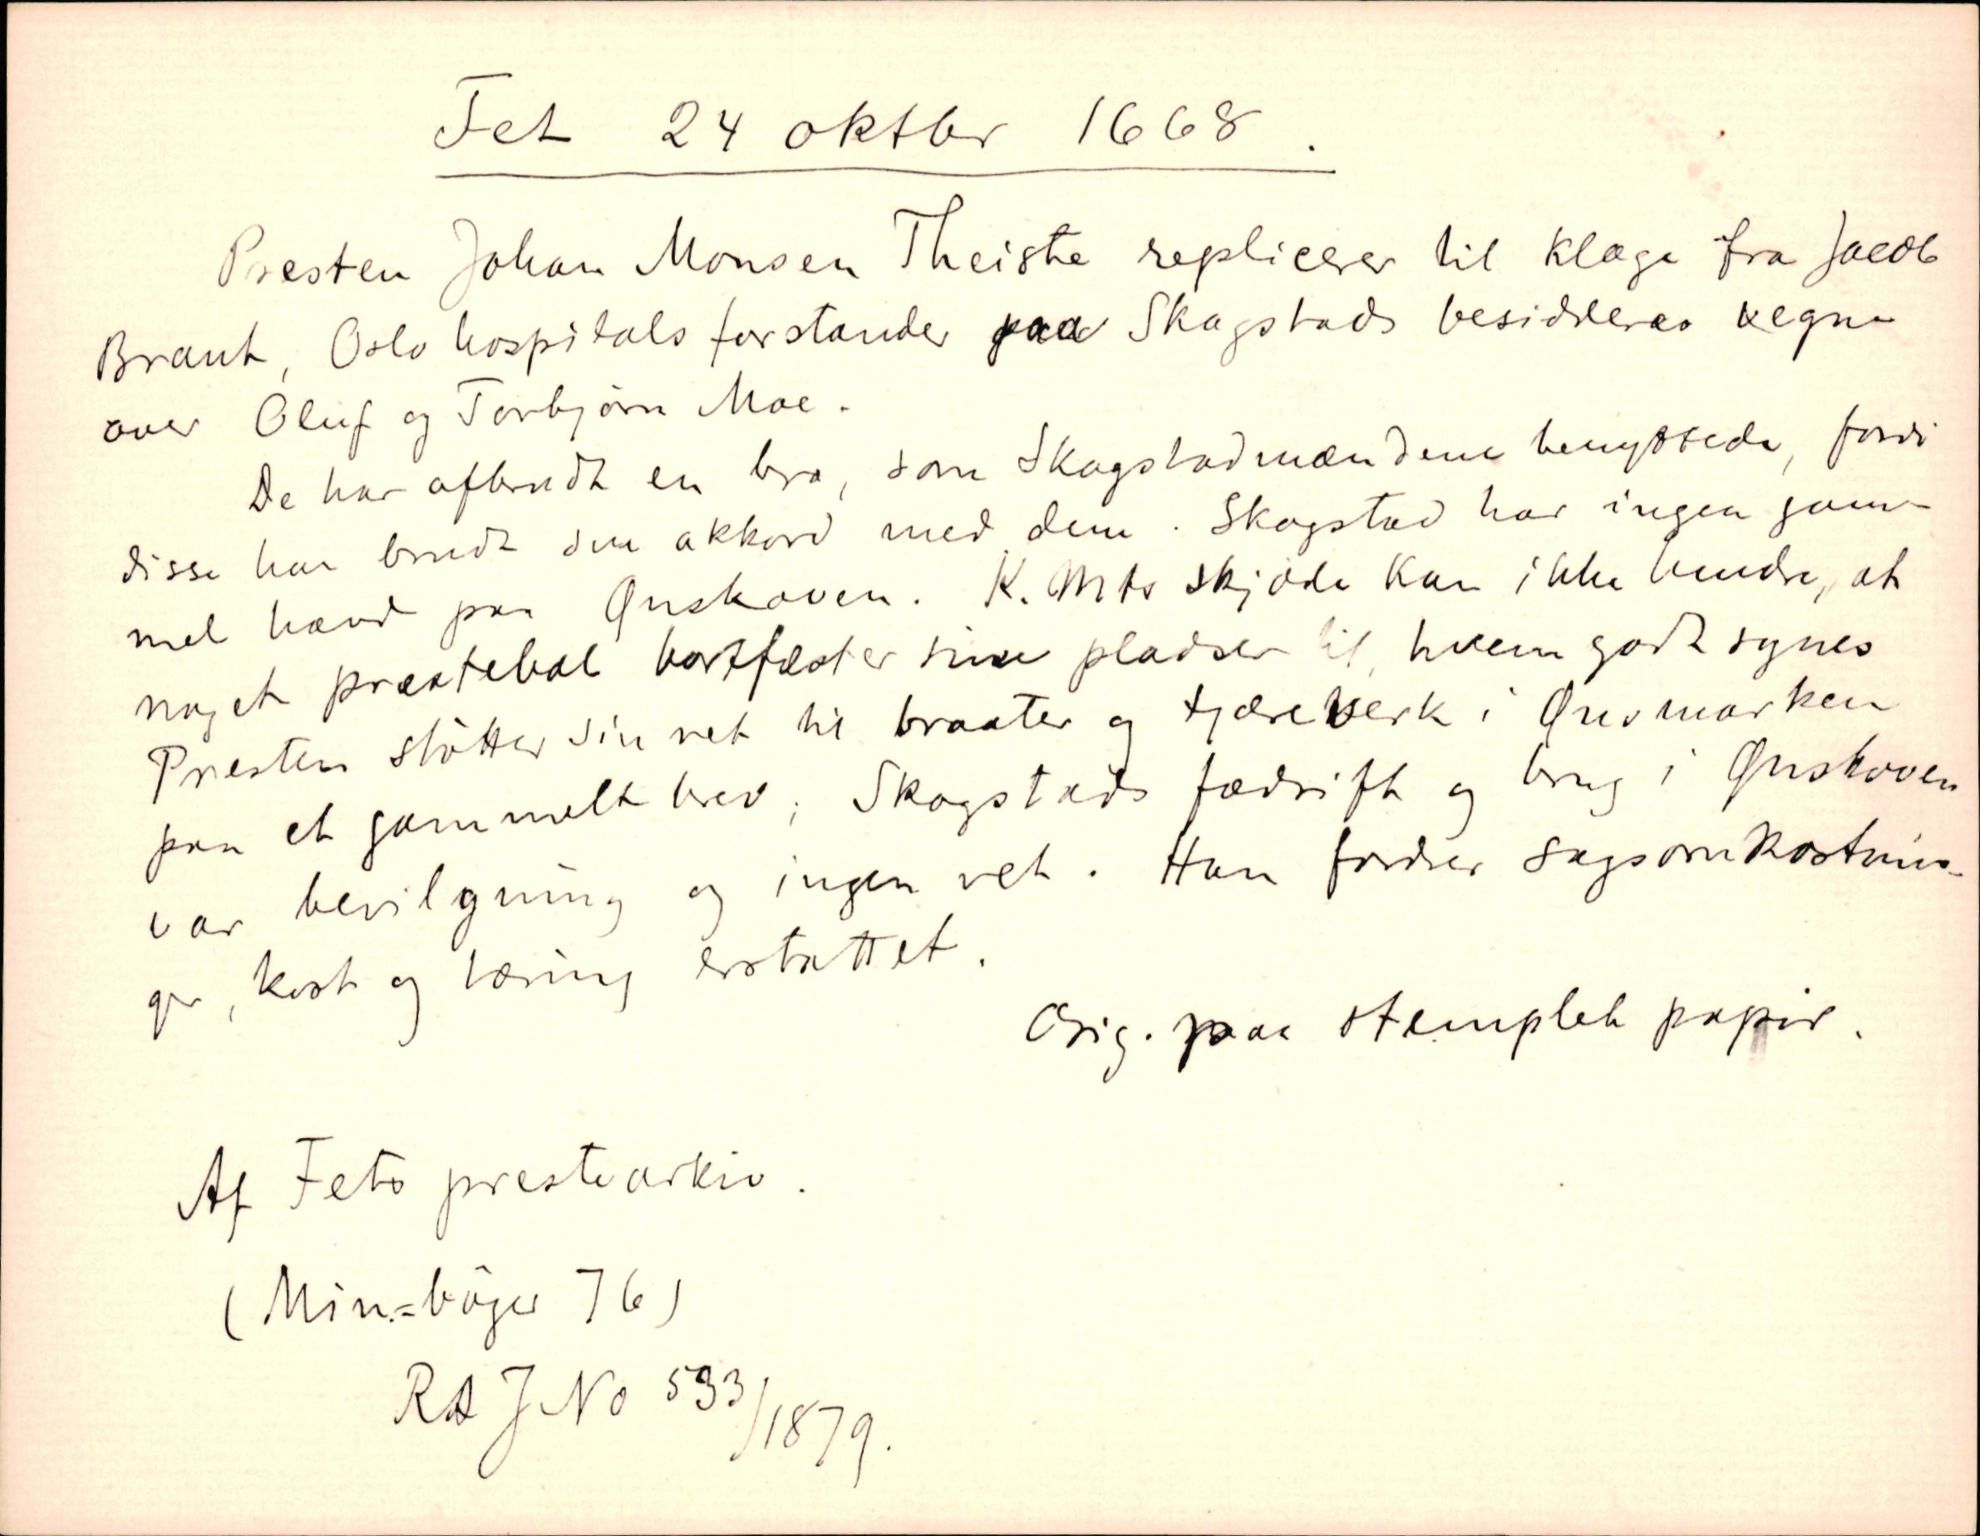 Fet 24 oktbr 1668.
Presten Johan Monsen Theiste replicerer til klage fra Jacob
Brant, Oslo hospitals forstander paa Skagstads besidderes vegne
over Oluf og Torbjørn Moe.
De har afbrudt en bro, som Skagstadmændene benyttede, fordi
disse har brudt sin akkord med dem. Skagstad har ingen gam-
mel hævd paa Ønskoven. K. Mts skjøde kan ikke hindre, at
noget præstebol bortfæster sine pladser til hvem godt synes
Presten støtter sin ret til braater og tjæreverk i Ønsmarken
paa et gammelt brev; Skagstads fædrift og brug i Ønskoven
var bevilgning og ingen ret. Han fordrer sagsomkostnin-
ger, kost og tæring erstattet.
Orig. paa stemplet papir.
Af Fets prestearkiv.
(Min.=bøger 76)
RA J No 533/1879.